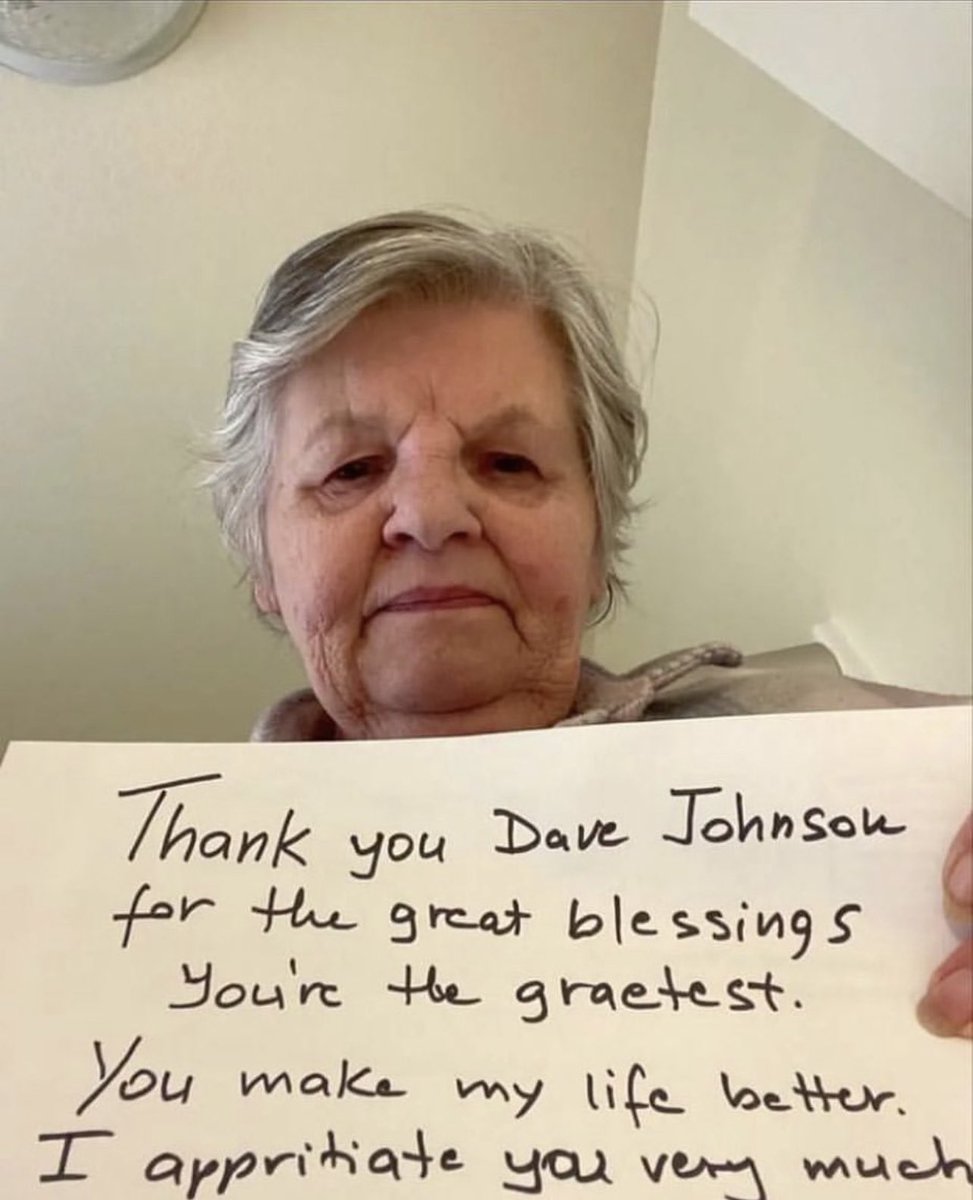 Thank you Dave Johnson
for the great blessings
You're the graetest.
You make my life better.
I appritiate you very much